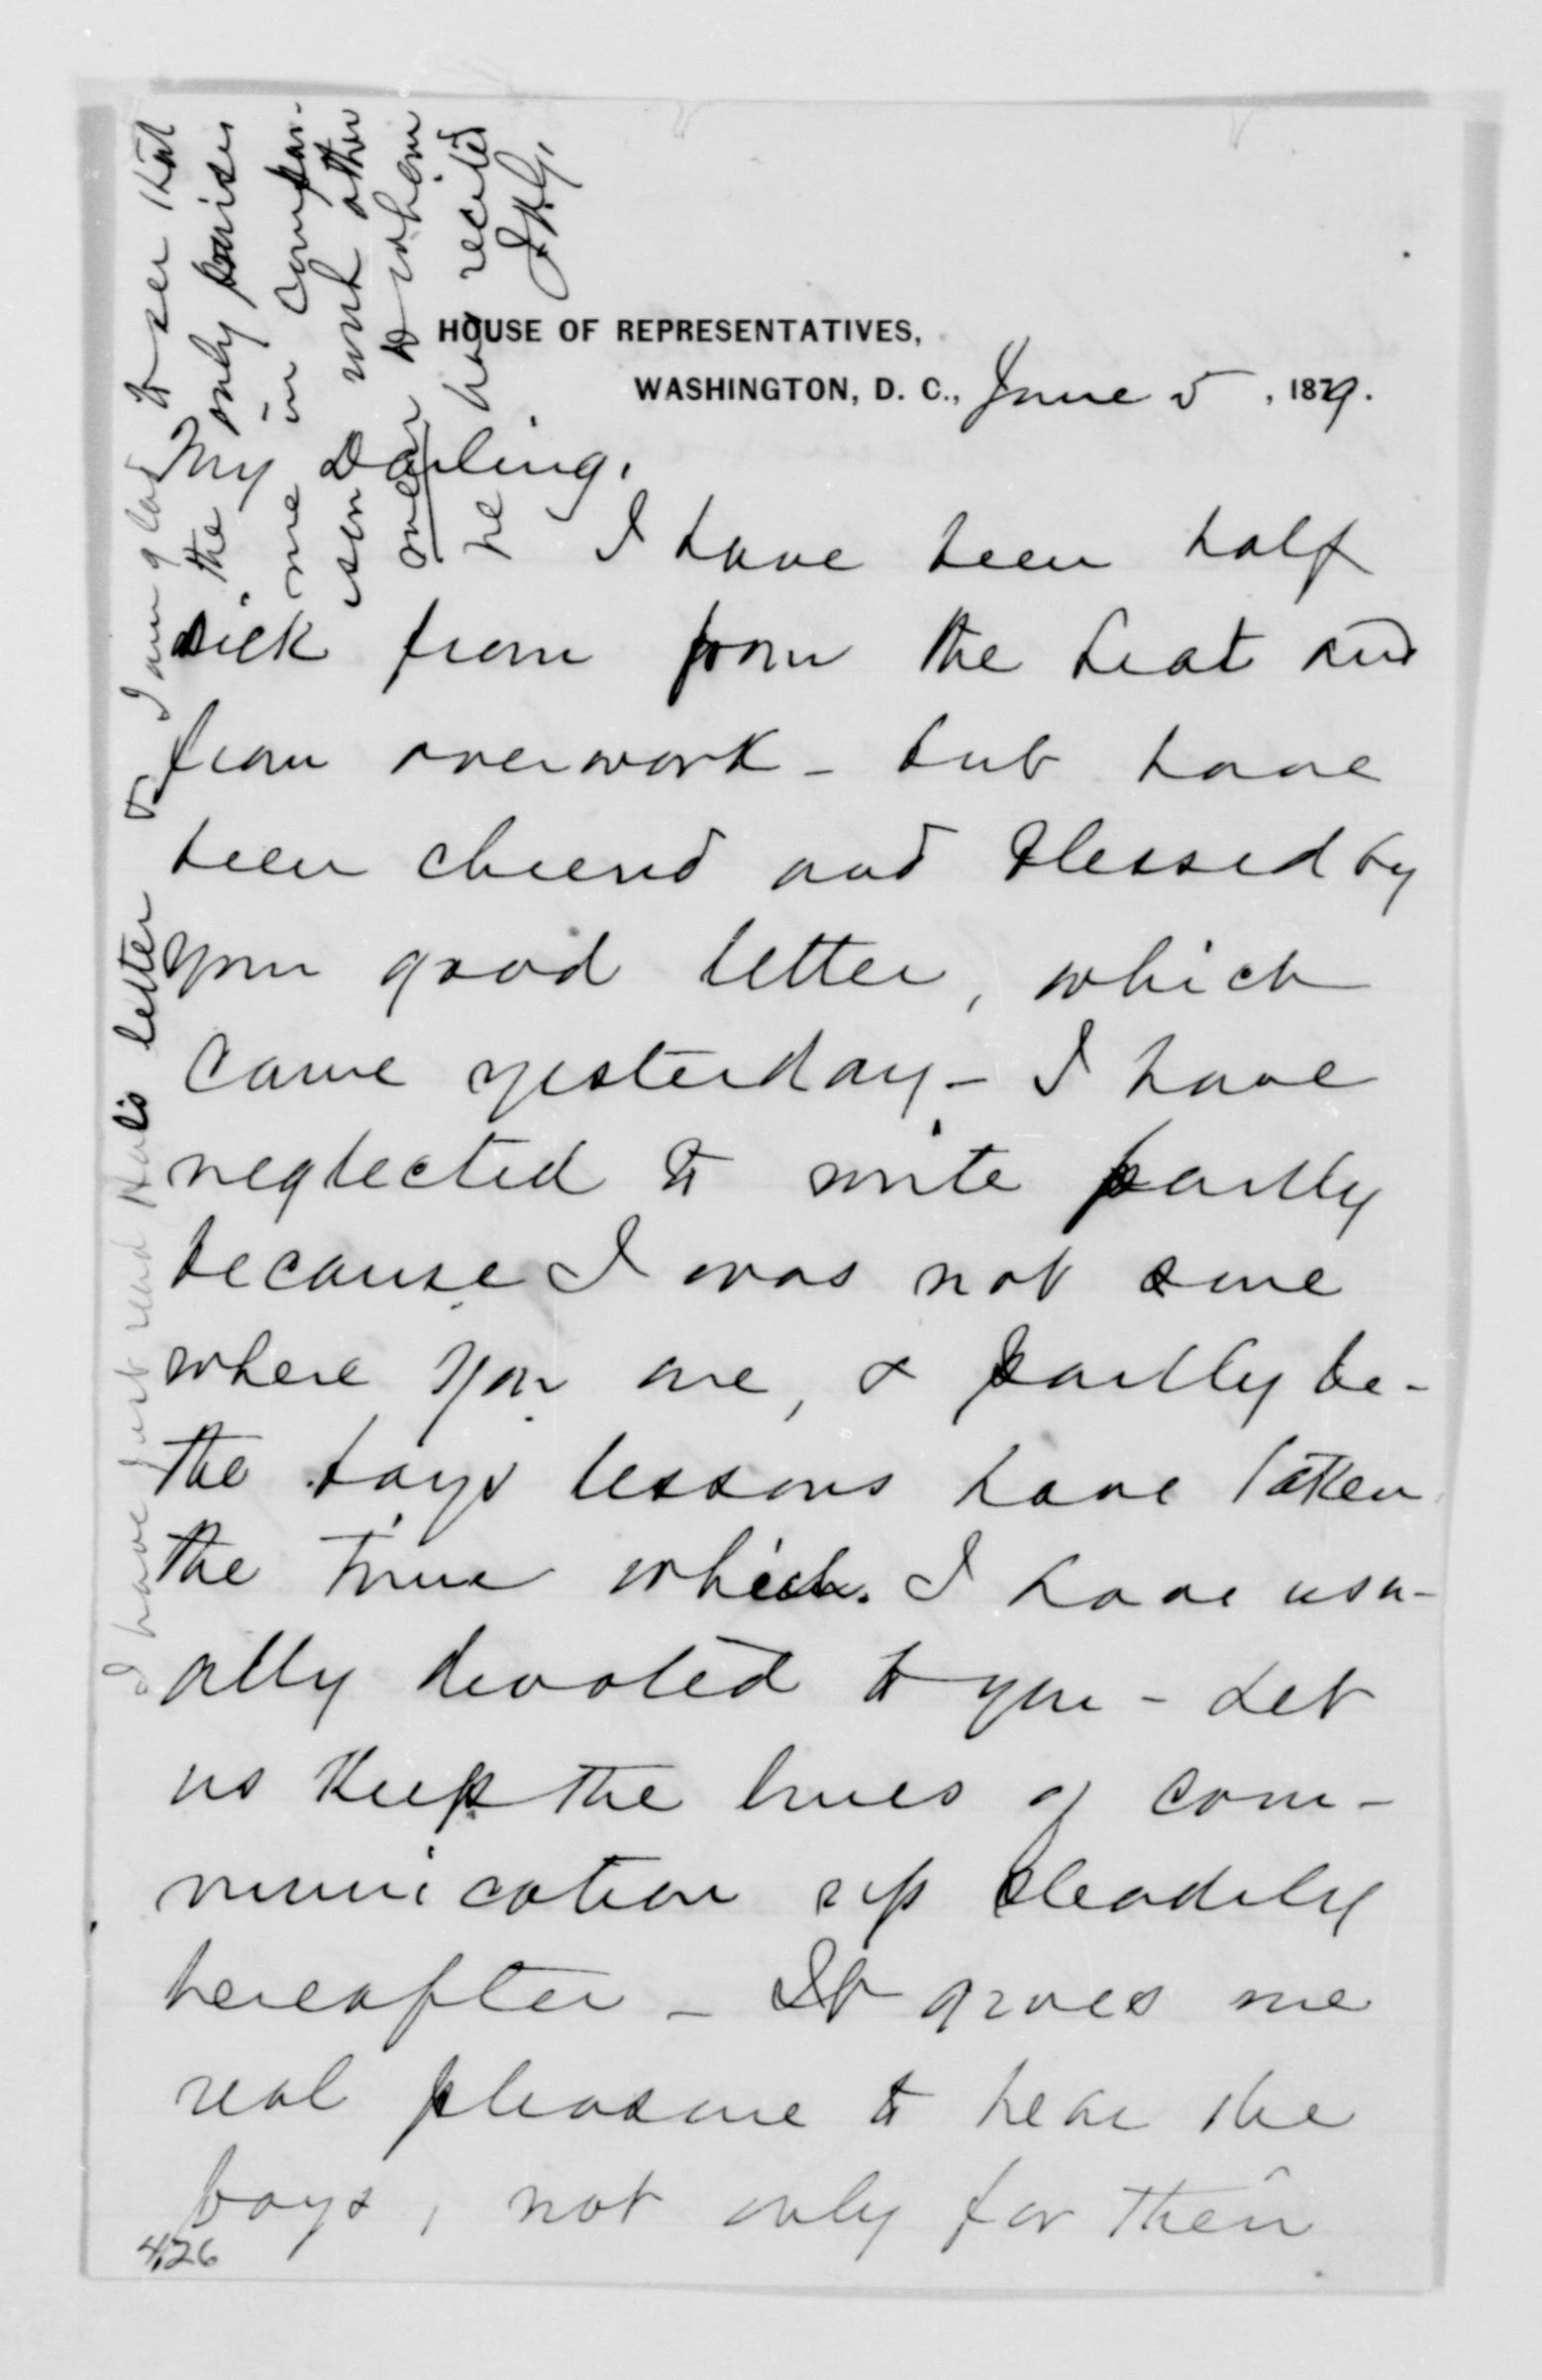 HOUSE OF REPRESENTATIVES,
WASHINGTON, D. C., June 5, 1879.
My Darling,
I have been half
sick from from the heat and
from overwork - but have
been cheered and blessed by
your good letter, which
came yesterday - I have
neglected to write partly
because I was not sure
where you are, & partly be-
the boys lessons have taken
the time which I have usu-
ally devoted to you - Let
us keep the lines of com-
munication up steadily
hereafter - It gives me
real pleasure to hear the
boys, not only for their
4,26
I have just read Hal's letter & I am glad to see that
the only praises
me in compar-
ison with other
men to whom
he has recited
JAG.